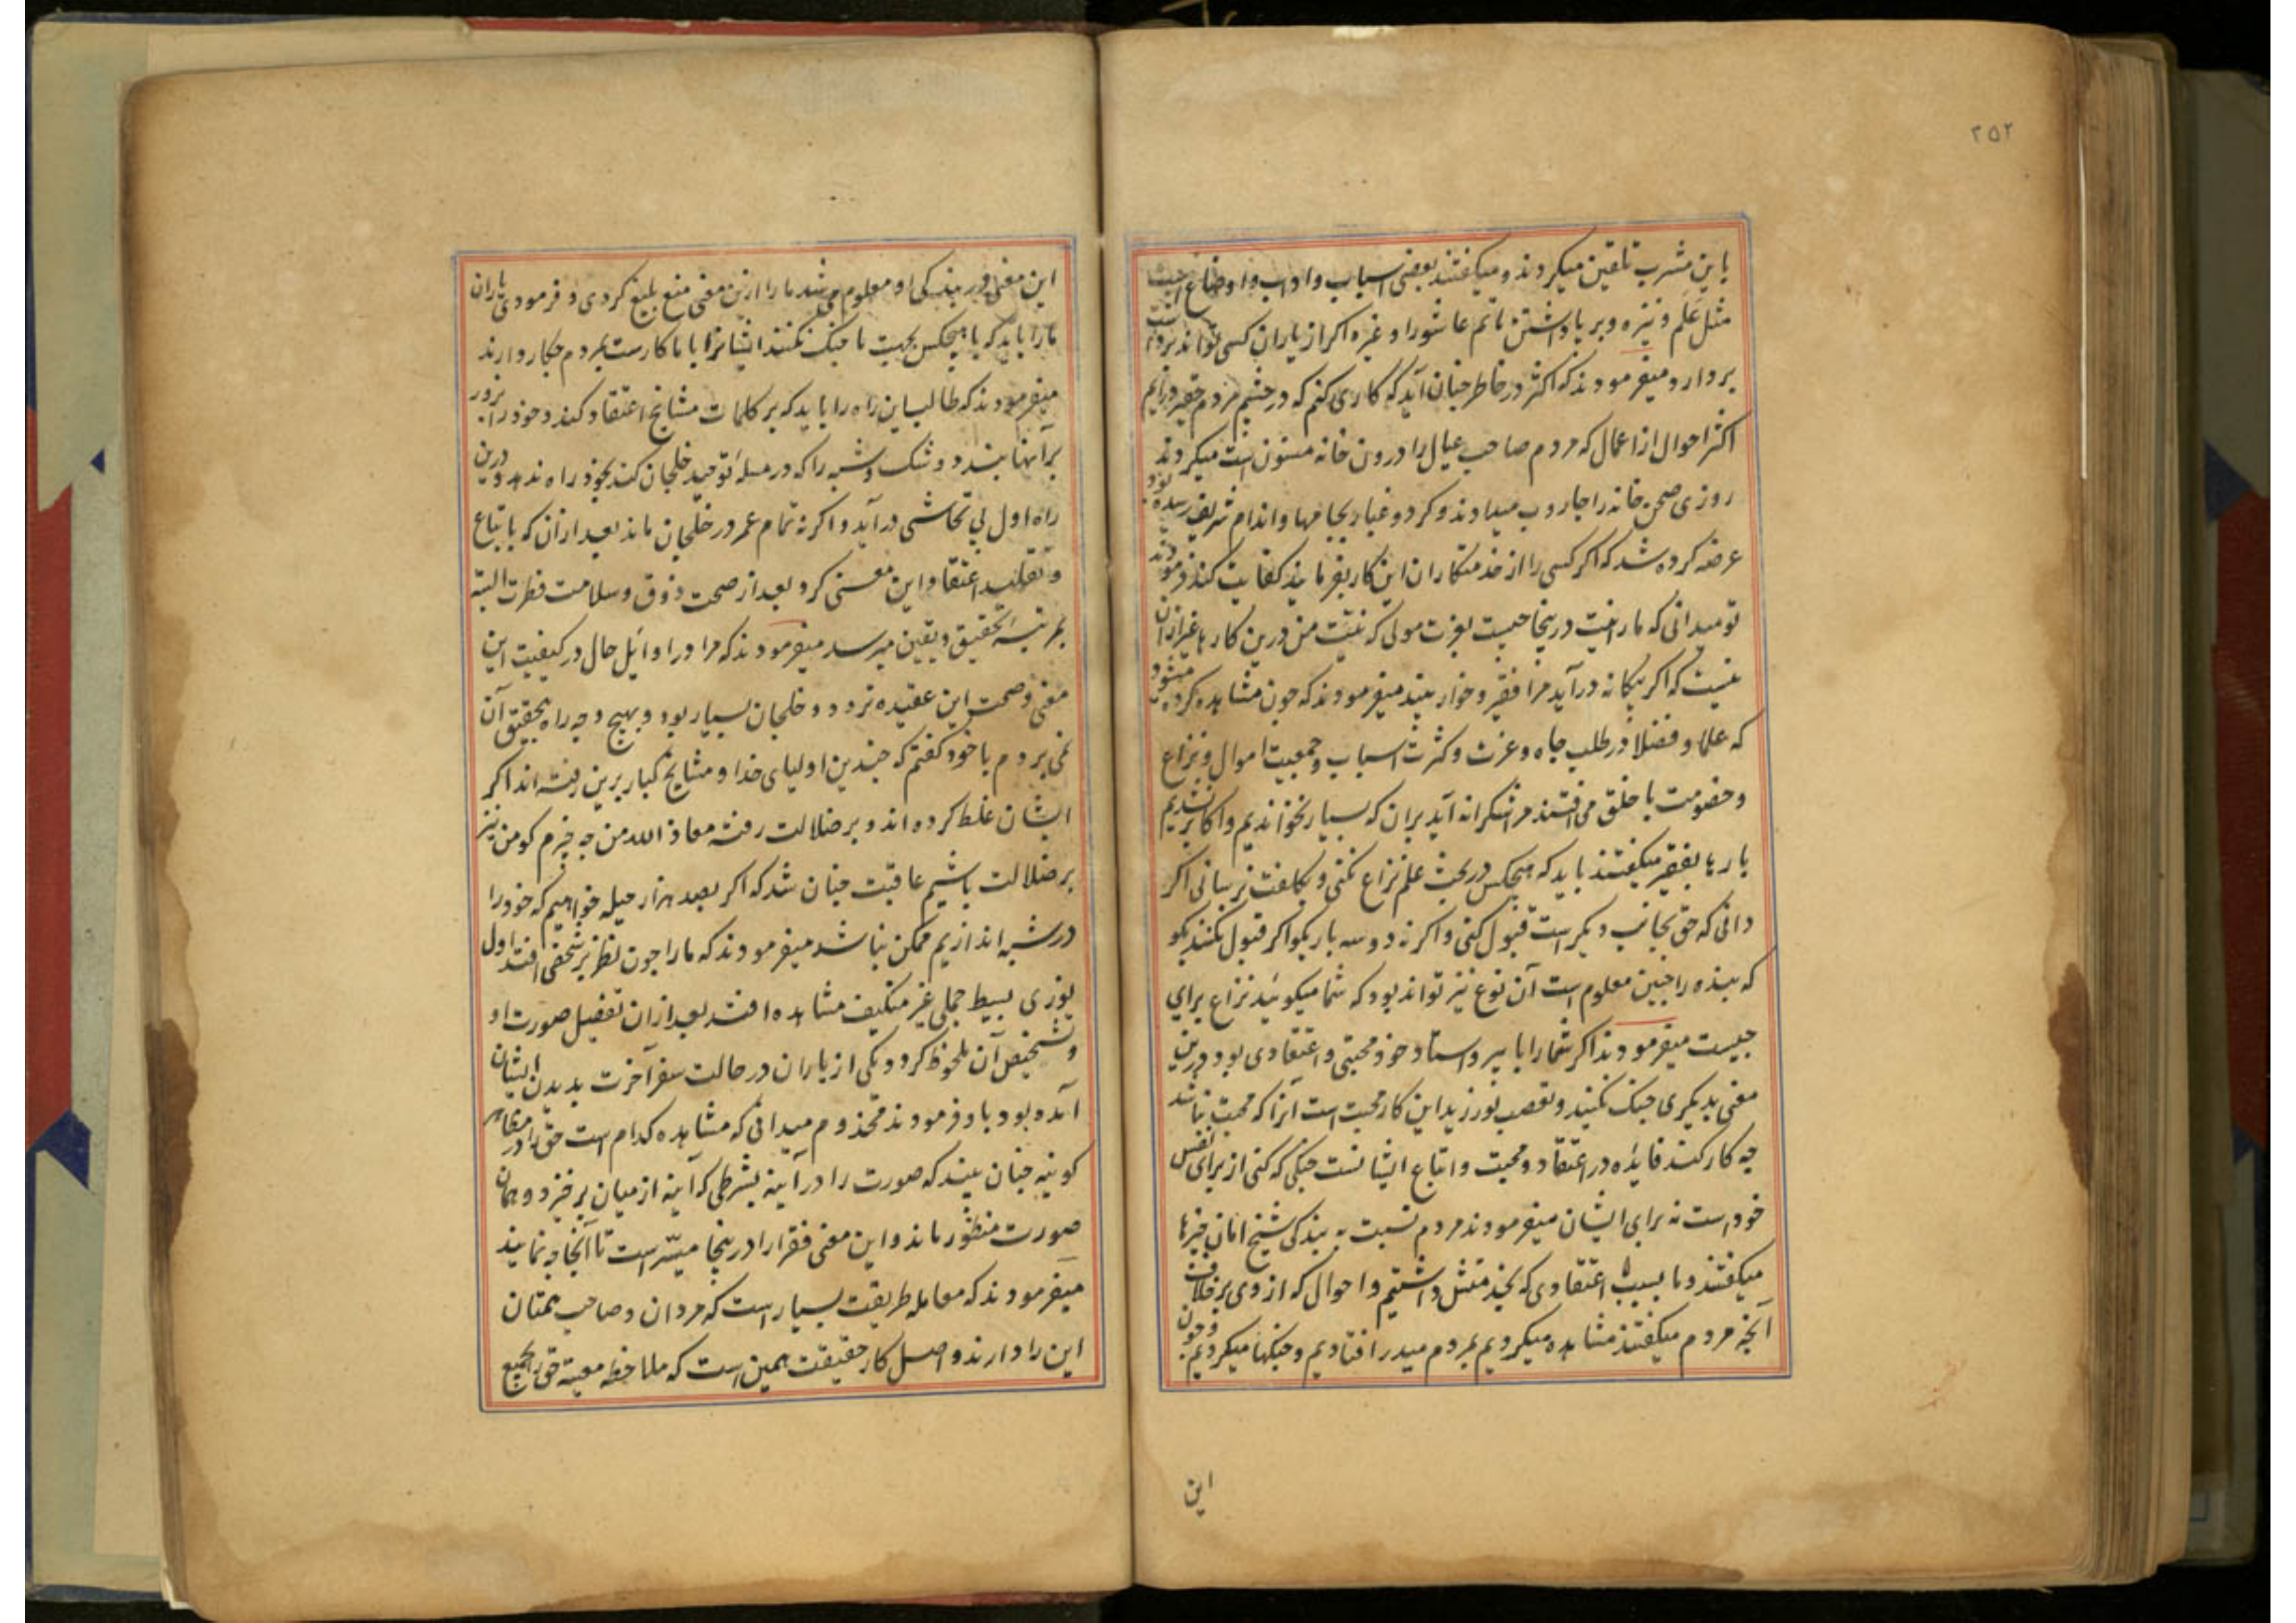 ۲۵۲
باین مشرب تلقین میکردند و میکفتند بعضی اسباب و اداب و اوضاع
مثل علم و نیزه و بر پا داشتن ماتم عاشورا و غیره اکر از یاران کسی تواند
بردارد و میفرمودند که اکثر در خاطر چنان آید که کاری کنم که در چشم مردم حقیر درایم
اکثر احوال از اعمال که مردم صاحب عیال را درون خانه مسنون است میکردند
روزی صحن خانه را جاروب میدادند و کرد و غبار بجامها و اندام شریف رسیده بود
عرضه کرده شد که اکر کسی را از خدمتکاران این کار بفرمایند کفایت کند فرمودند
تو میدانی که ما را نیت درینجا چیست بعزت مولی که نیت من درین کار ما غیر ازان
نیست که اکر بیکانه درآید مرا فقیر و خوار بیند میفرمودند که چون مشاهده کرده میشود
که علما و فضلا در طلب جاه و عزت و کثرت اسباب و جمعیت اموال و نزاع
و خصومت با خلق می افتند مر اشکرانه آید بران که بسیار نخواندیم و اکابر نشدیم
بارها بفقیر میکفتند باید که با هیچکس در بحث علم نزاع نکنی و بکلفت نرسانی اکر
دانی که حق بجانب دیکر است قبول کنی و اکر نه دو سه بار بکو اکر قبول نکنند بکو
که بنده را چنین معلوم است آن نوع نیز تواند بود که شما میکوئید نزاع برای
چیست میفرمودند اکر شما را با پیر و استاد خود محبتی و اعتقادی بود درین
معنی بدیکری جنک نکنید و تعصب نورزید این کار محبت است آنرا که محبت نباشد
چه کار کند فایده در اعتقاد و محبت و اتباع ایشانست جنکی که کنی از برای نفس
خود است نه برای ایشان میفرمودند مردم نسبت به بندکی شیخ امان چیزها
میکفتند و ما بسبب اعتقادی که بخدمتش داشتیم و احوال که از وی بر خلاف
آنچه مردم میکفتند مشاهده میکردیم بمردم میدر افتادیم و جنکها میکردیم و چون
این
این معنی در بندکی او معلوم می شد ما را ازین معنی منع بلیغ کردی و فرمودی یاران
ما را باید که با هیچکس بجهت ما جنک نکنند ایشانرا با ما کارست بمردم چکار دارند
میفرمودند که طالب این راه را باید که بر کلمات مشایخ اعتقاد کند و خود را بزور
برآنها بندد و شک و شبه را که در مسئله توحید خلجان کند بخود راه ندهد و درین
راه اول بی تحاشی درآید و اکر نه تمام عمر در خلجان ماند بعد ازان که باتباع
و تقلید اعتقاد این معنی کرد بعد از صحت ذوق و سلامت فطرت البته
بمرتبه تحقیق و یقین میرسد میفرمودند که مرا در اوائل حال در کیفیت این
معنی و صحت این عقیده تردد و خلجان بسیار بود و بهیچ وجه راه بتحقیق آن
نمی بردم با خود کفتم که چندین اولیای خدا و مشایخ کبار برین رفته اند اکر
ایشان غلط کرده اند و بر ضلالت رفته معاذ الله من چه چیزم کو من نیز
بر ضلالت باشیم عاقبت چنان شد که اکر بصد هزار حیله خواهیم که خود را
در شبه اندازیم ممکن نباشد میفرمودند که ما را چون نظر بر شخصی افتد اول
نوری بسیط جملی غیر متکیف مشاهده افتد بعد ازان تفصیل صورت او
و تشخیص آن ملحوظ کردد یکی از یاران در حالت سفر آخرت بدیدن ایشان
آمده بود باو فرمودند مخدوم میدانی که مشاهده کدام است حق را در مظاهر
کونیه چنان بیند که صورت را در آینه بشرطی که آینه از میان برخیزد و همان
صورت منظور ماند و این معنی فقرا را درینجا میسّر است تا آنجا چه نمایند
میفرمودند که معامله طریقت بسیار است که مردان و صاحب همتان
این را دارند و اصل کار حقیقت همین است که ملاحظه معیة حق بجمیع